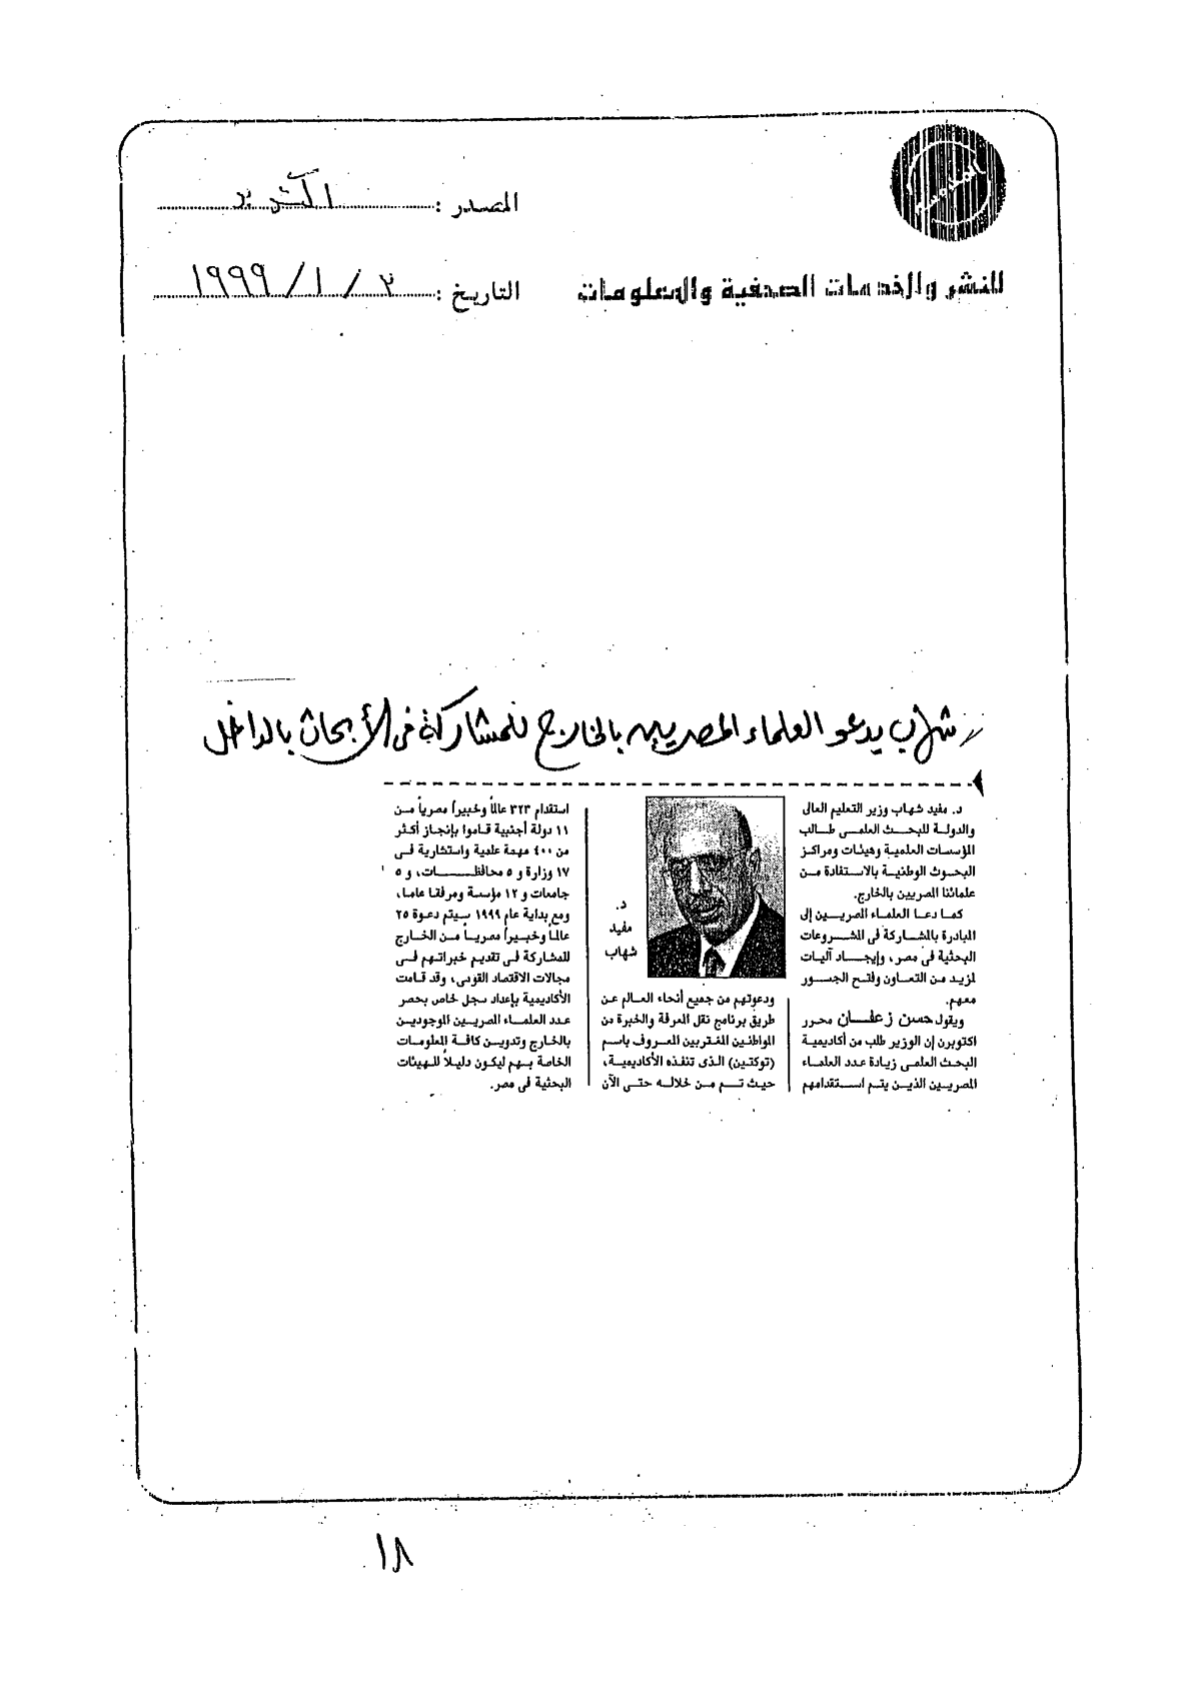 المصدر : اكتوبر
للنشر والخدمات الصحفية والمعلومات
التاريخ : ٣ / ١ / ١٩٩٩
شهاب يدعو العلماء المصريين بالخارج للمشاركة فى الأبحاث بالداخل
د. مفيد شهاب وزير التعليم العالى
والدولة للبحث العلمى طالب
المؤسسات العلمية وهيئات ومراكز
البحوث الوطنية بالاستفادة من
علمائنا المصريين بالخارج.
كما دعا العلماء المصريين إلى
المبادرة بالمشاركة فى المشروعات
البحثية فى مصر، وإيجاد آليات
لمزيد من التعاون وفتح الجسور
معهم.
ويقول حسن زعفان محرر
اكتوبرن إن الوزير طلب من أكاديمية
البحث العلمى زيادة عدد العلماء
المصريين الذين يتم استقدامهم
د.
مفيد
شهاب
ودعوتهم من جميع أنحاء العالم عن
طريق برنامج نقل المعرفة والخبرة من
المواطنين المغتربين المعروف باسم
(توكتين) الذى تنفذه الأكاديمية،
حيث تم من خلاله حتى الآن
استقدام ٣٢٣ عالماً وخبيراً مصرياً من
١١ دولة أجنبية قاموا بإنجاز أكثر
من ٤٠٠ مهمة علمية واستشارية فى
١٧ وزارة و ٥ محافظات، و ٥
جامعات و ١٢ مؤسسة ومرفقا عاما،
ومع بداية عام ١٩٩٩ سيتم دعوة ٢٥
عالماً وخبيراً مصرياً من الخارج
للمشاركة فى تقديم خبراتهم فى
مجالات الاقتصاد القومى، وقد قامت
الأكاديمية بإعداد سجل خاص بحصر
عدد العلماء المصريين الموجودين
بالخارج وتدوين كافة المعلومات
الخاصة بهم ليكون دليلاً للهيئات
البحثية فى مصر.
١٨